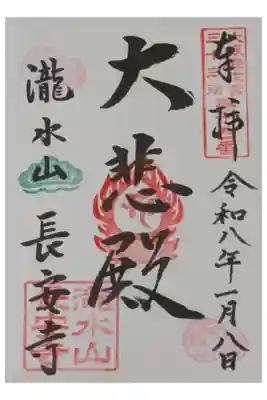 奉拝
令和八年一月八日
大悲殿
瀧水山
長安寺
瀧水山
長安寺